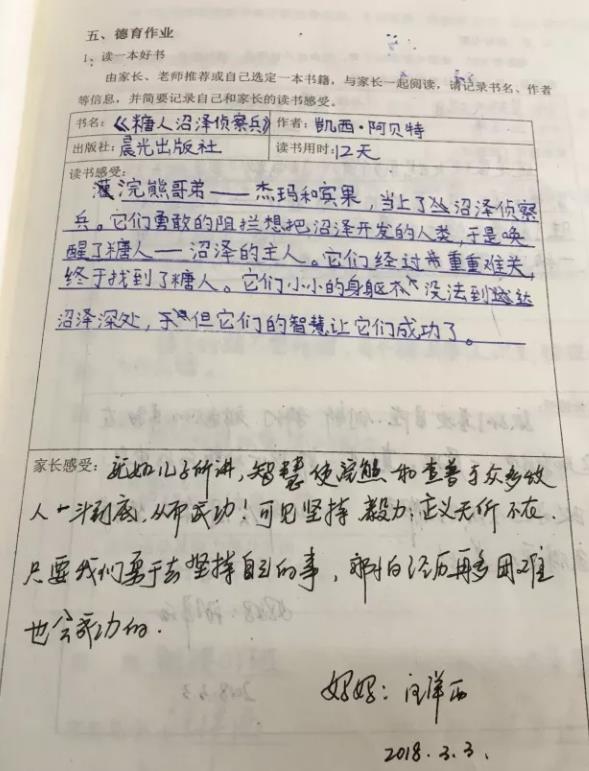 五、德育作业
1、读一本好书
由家长、老师推荐或自己选定一本书籍，与家长一起阅读，请记录书名、作者
等信息，并简要记录自己和家长的读书感受。
书名：《糖人沼泽侦察兵》 作者：凯西·阿贝特
出版社：晨光出版社 读书用时：12天
读书感受：
浣熊哥弟——杰玛和宾果，当上了沼泽侦察
兵。它们勇敢的阻拦想把沼泽开发的人类，于是唤
醒了糖人——沼泽的主人。它们经过重重难关，
终于找到了糖人。它们小小的身躯 没法到达
沼泽深处，但它们的智慧让它们成功了。
家长感受：就如儿子所讲，智慧使浣熊和查普与众多敌
人一斗到底，从而成功！可见坚持 毅力 正义无所不在
只要我们勇于去坚持自己的事，哪怕经历再多困难
也会成功的.
妈妈：
2018.3.3.